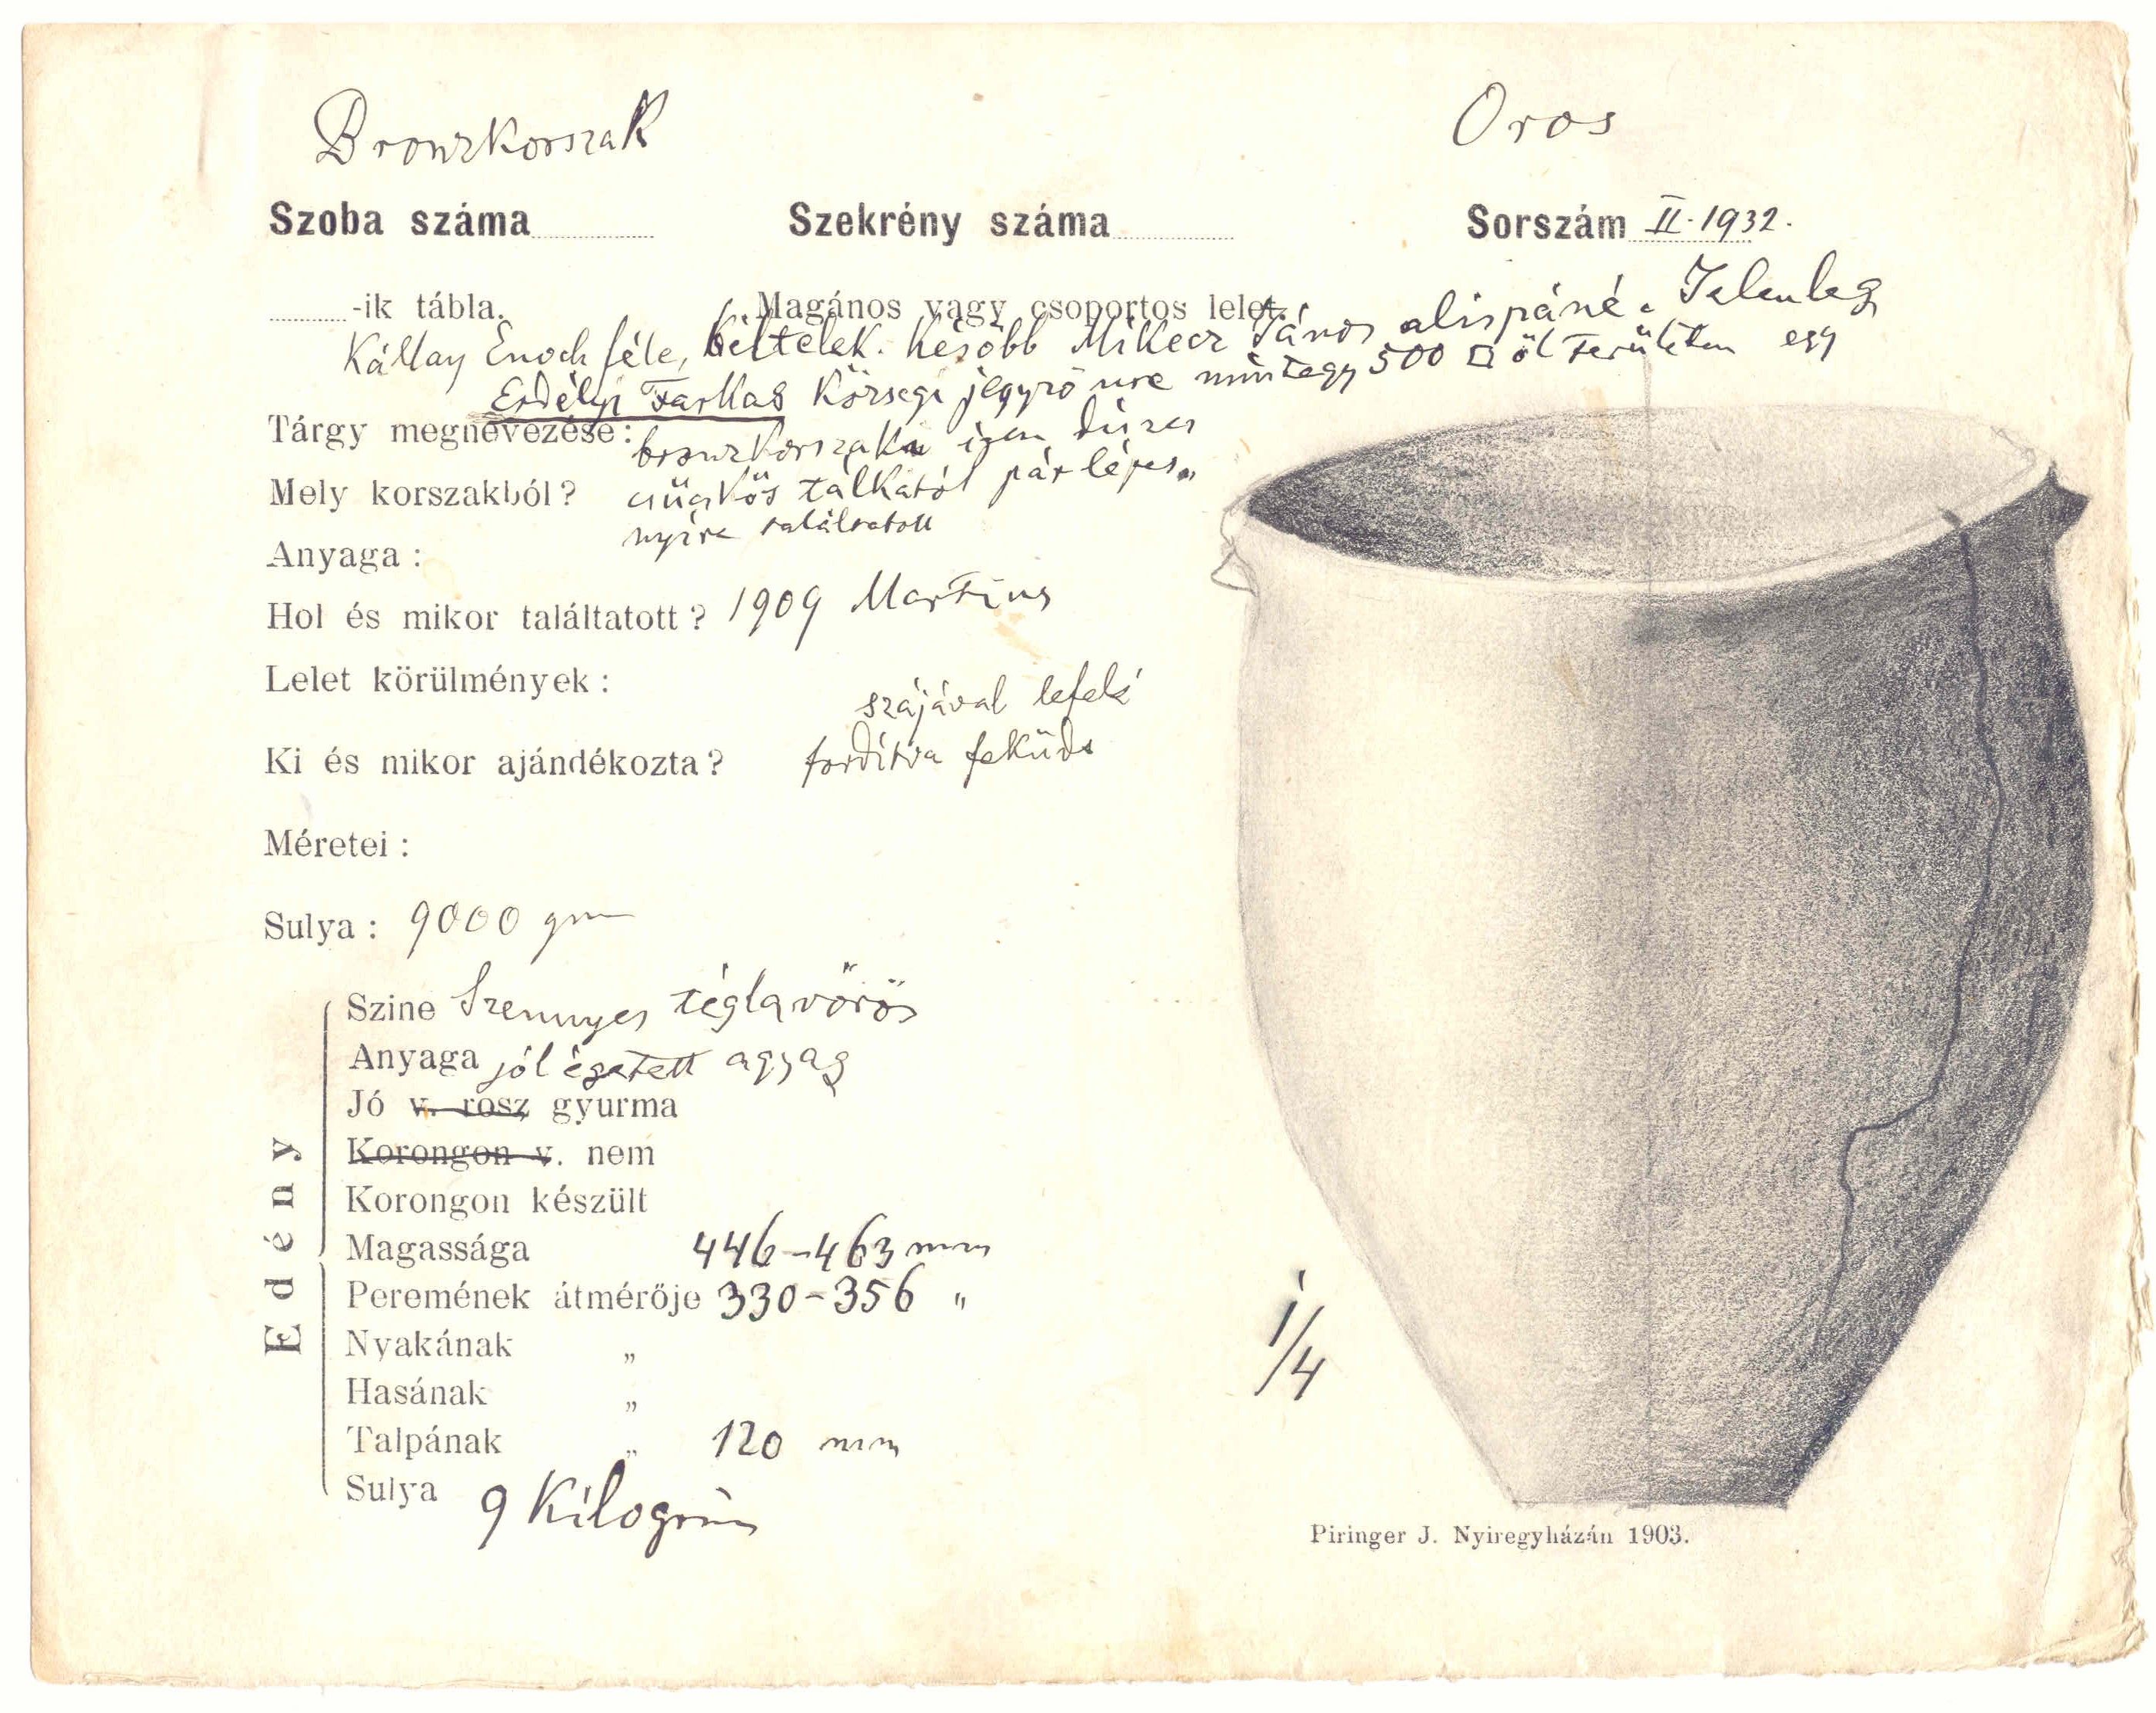 Bronzkorszak
Oros
Szoba száma
Szekrény száma
Sorszám II. 1932.
-ik tábla.
Magános vagy csoportos lelet.
Kállay Enoch féle, béltelek. Később Mikecz János alispáné. Jelenleg
Erdélyi Farkas községi jegyző mintegy 500 □ öl területen egy
Tárgy megnevezése:
bronzkorszaki igen díszes
Mely korszakból?
csücskös tálkától pár lépés
nyire találtatott
Anyaga :
Hol és mikor találtatott? 1909 Martius
Lelet körülmények :
szájával lefelé
Ki és mikor ajándékozta?
fordítva feküdt
Méretei :
Sulya : 9000 gm
Edény
Szine Szennyes téglavörös
Anyaga jól égetett agyag
Jó v. rosz gyurma
Korongon v. nem
Korongon készült
Magassága 446-463 mm
Peremének átmérője 330-356 "
Nyakának "
Hasának "
Talpának " 120 mm
Sulya 9 Kilogrm
1/4
Piringer J. Nyiregyházán 1903.